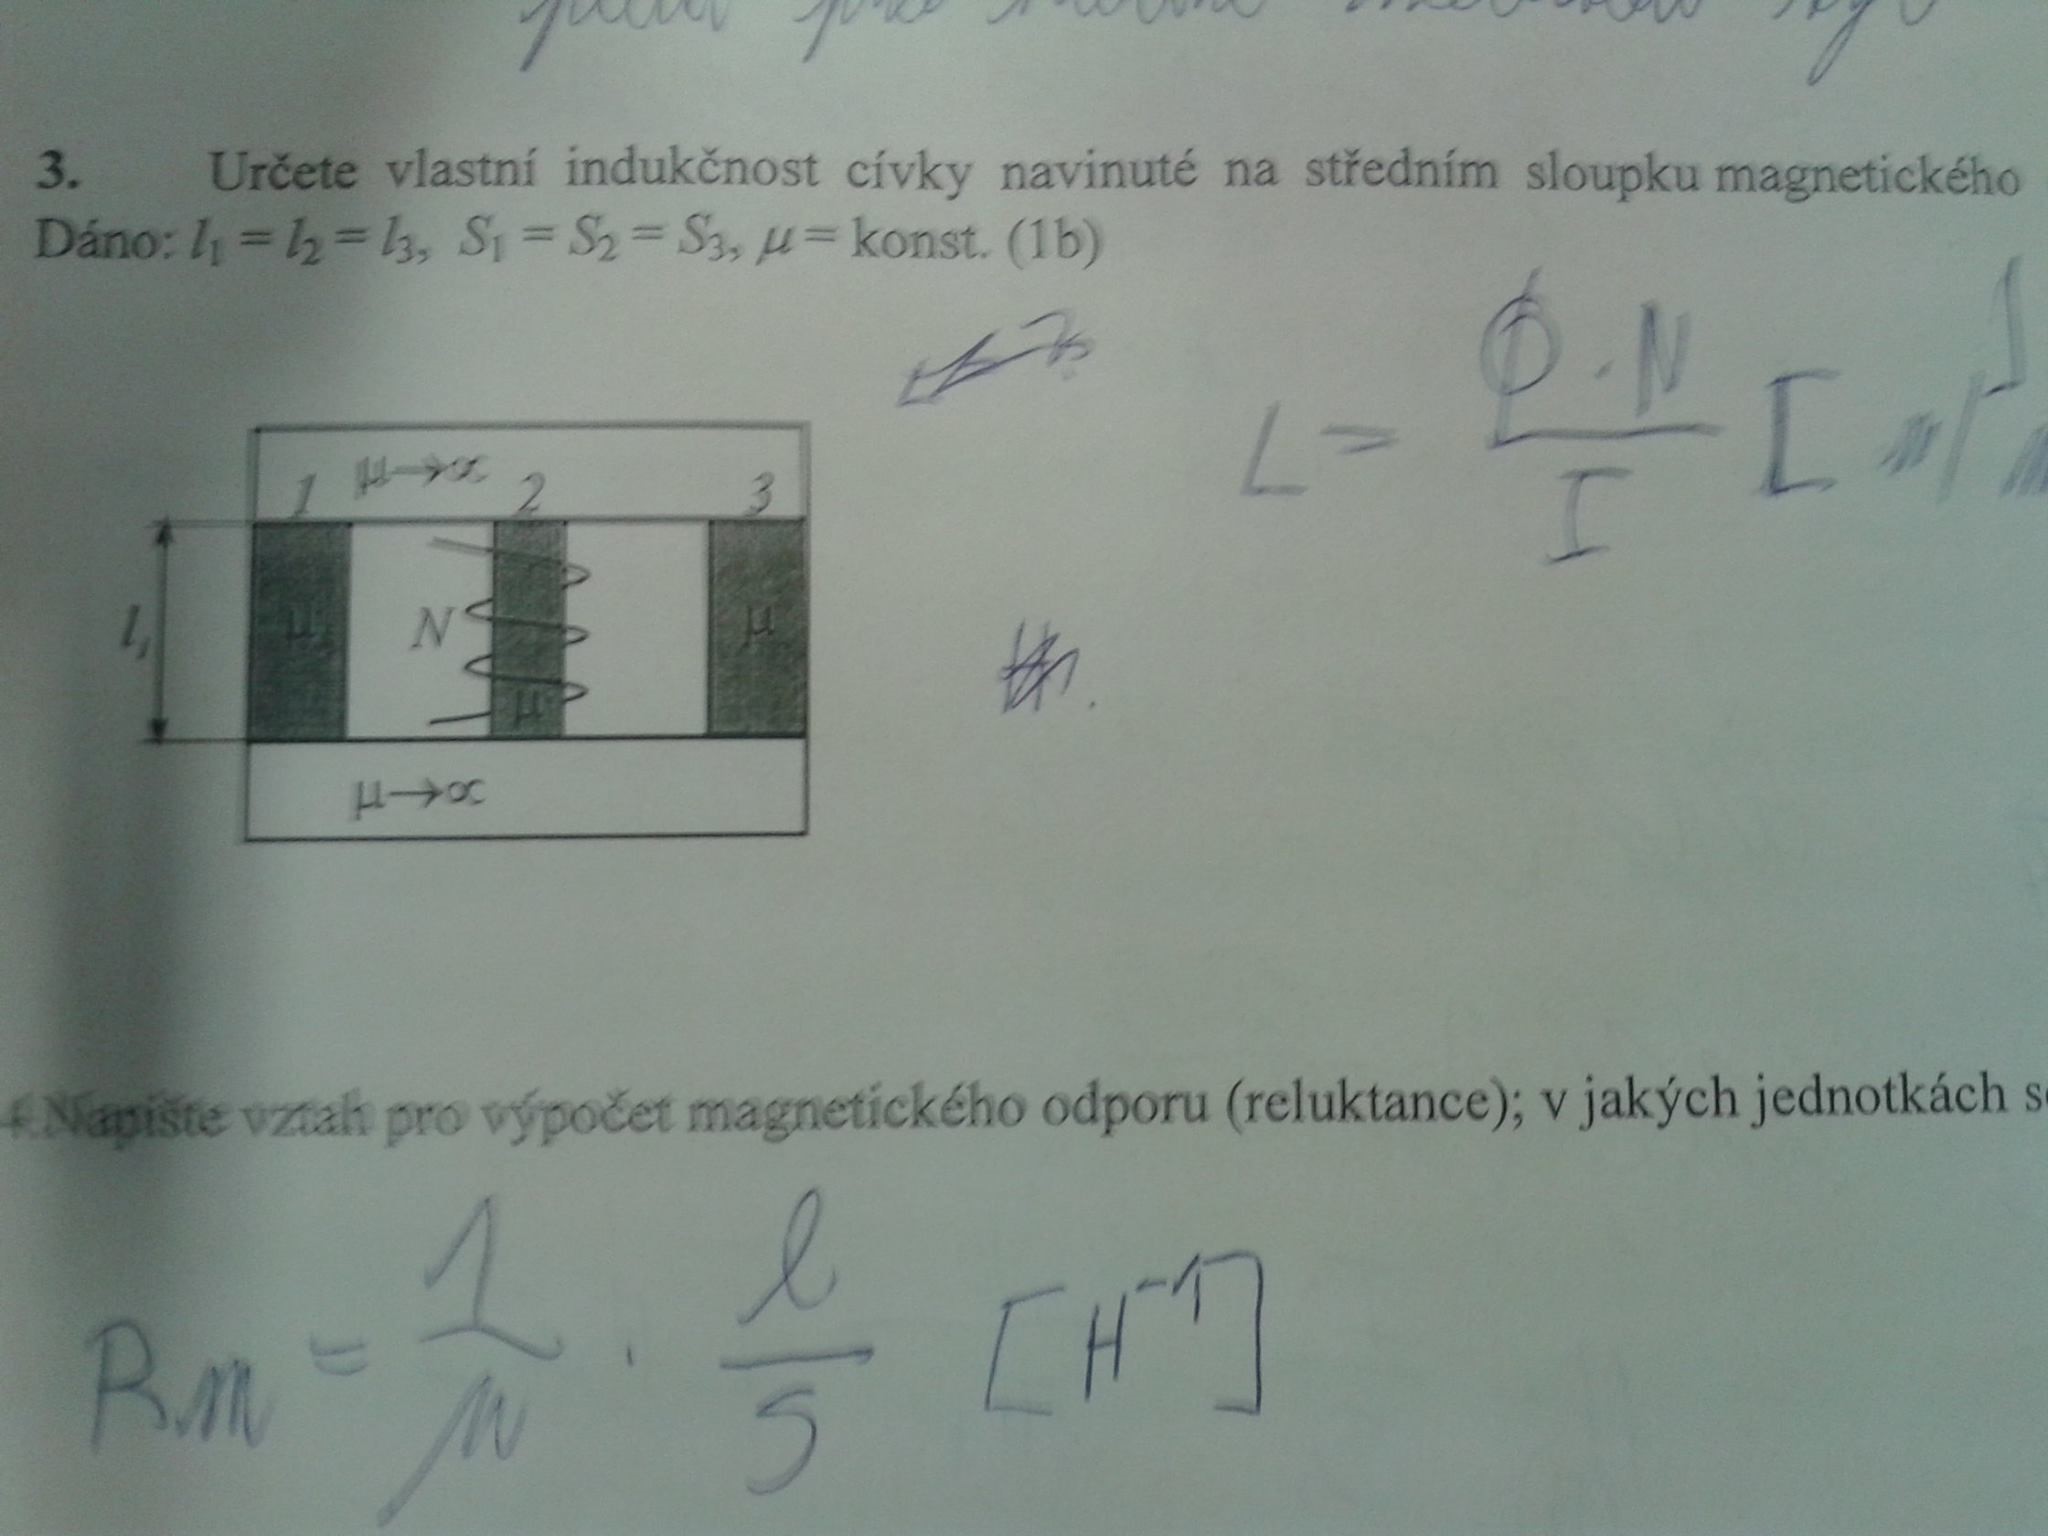 3. Určete vlastní indukčnost cívky navinuté na středním sloupku magnetického
Dáno: l₁ = l₂ = l₃, S₁ = S₂ = S₃, μ = konst. (1b)
L = Φ · N / I [
μ→∝
1 2 3
l₁ μ N μ μ
μ→∝
4. Napište vztah pro výpočet magnetického odporu (reluktance); v jakých jednotkách
Rm = 1/μ · l/S [H⁻¹]